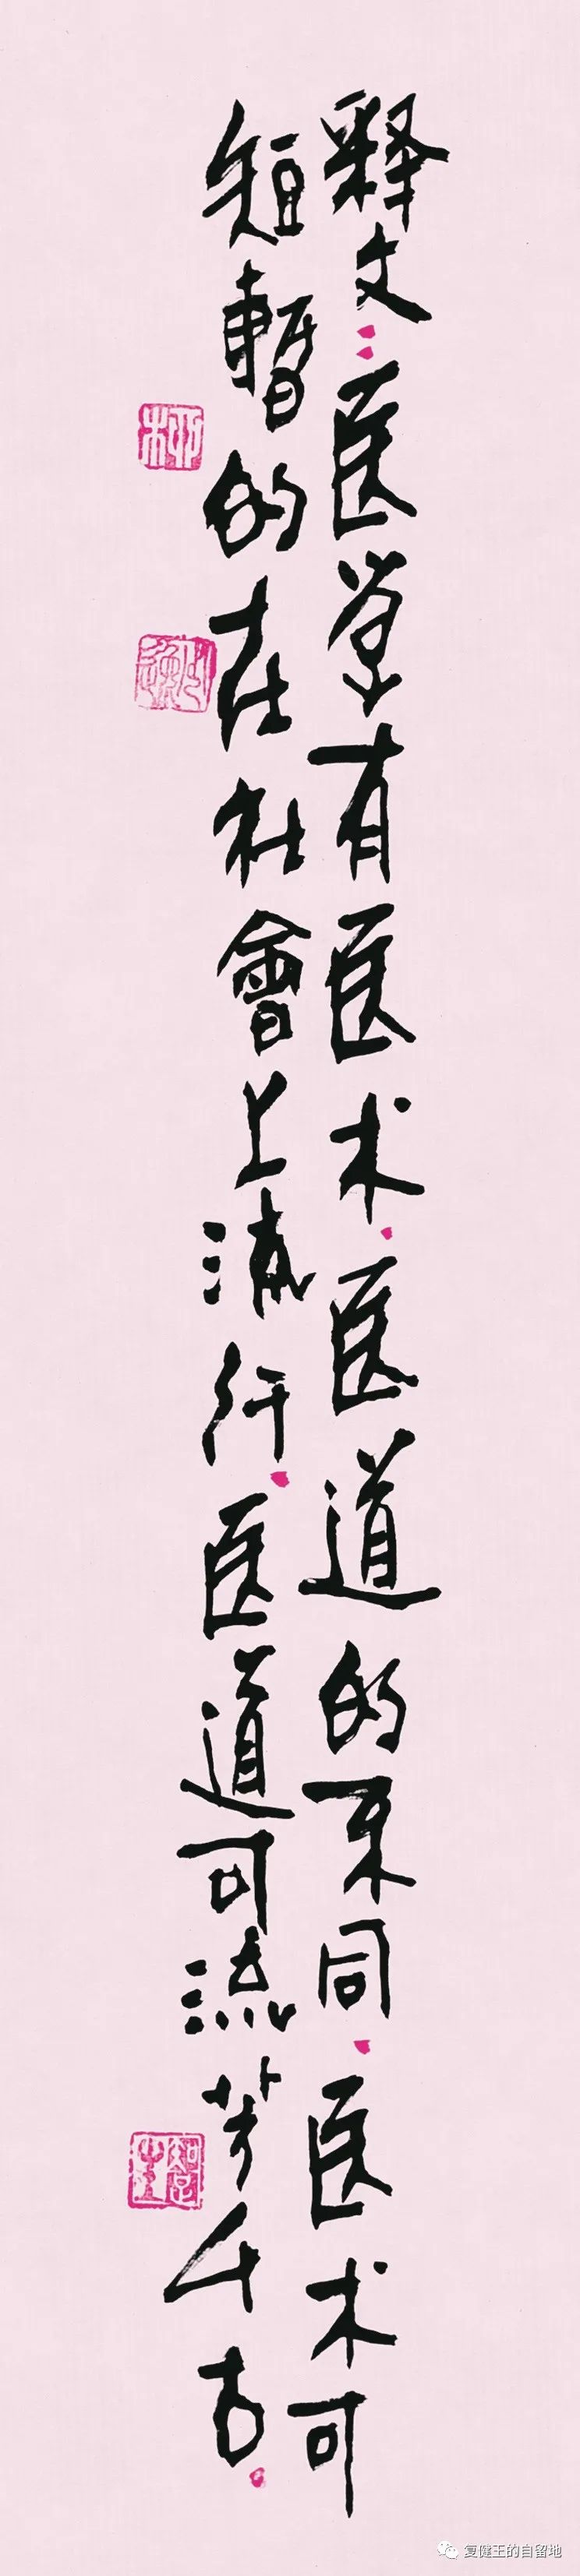 释文：医学有医术、医道的不同、医术可
短暫的在社會上流行、医道可流芳千古。
复健王的自留地